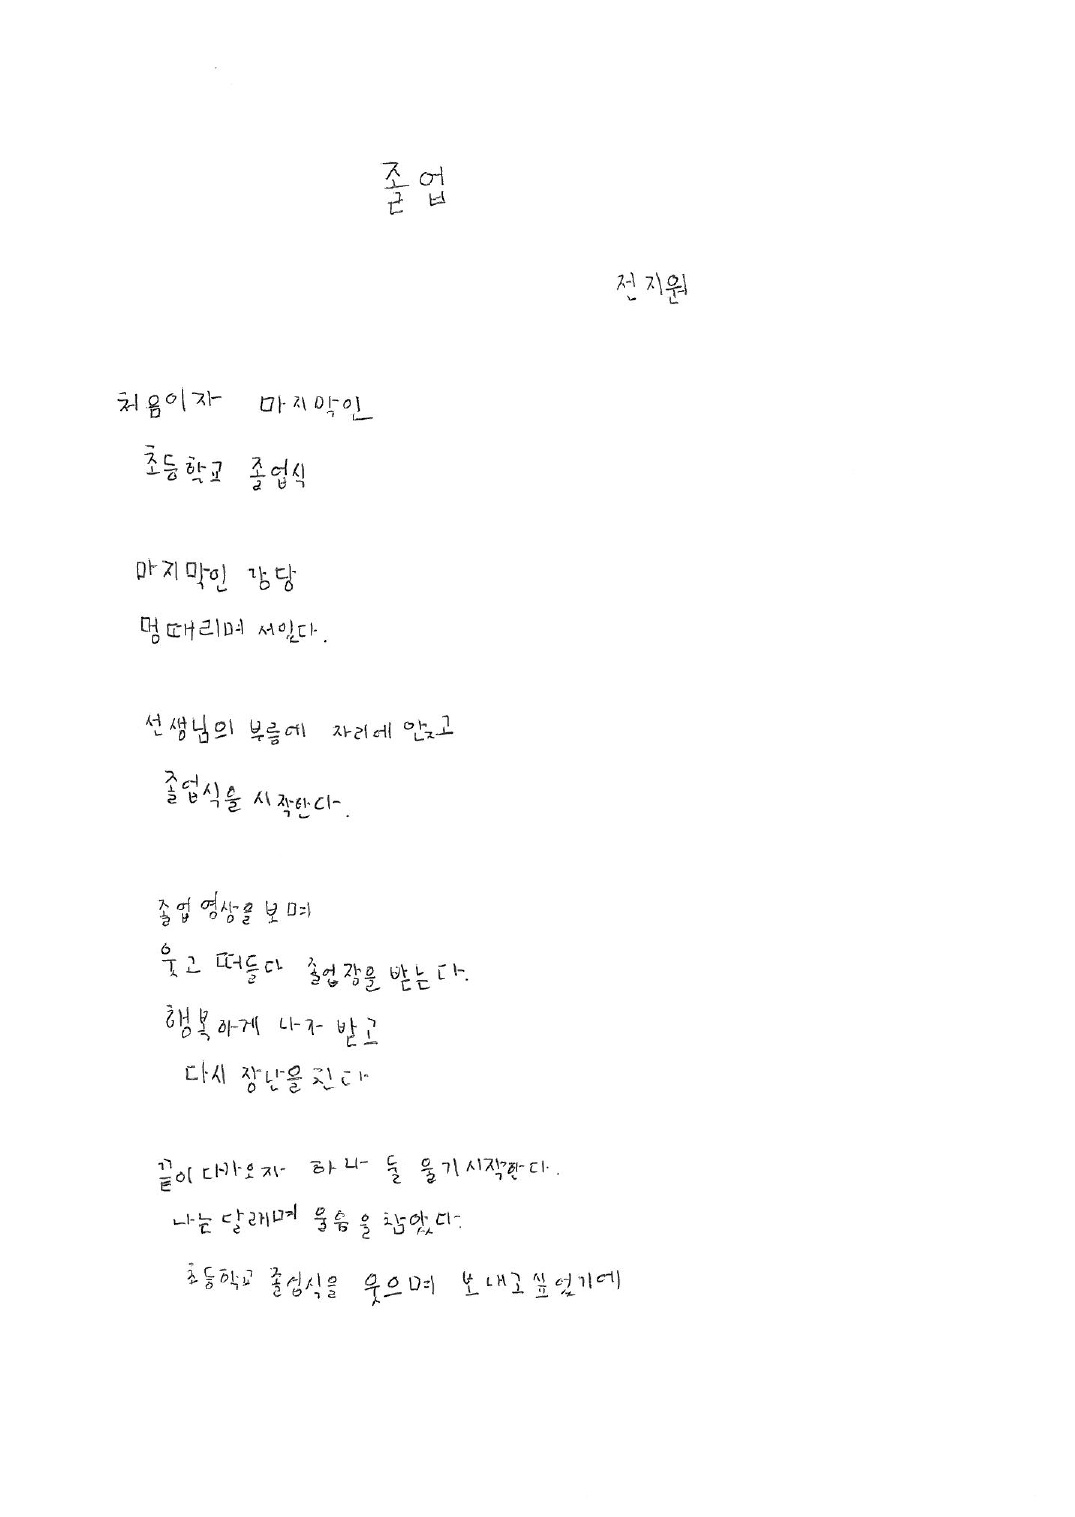 졸업
전지원
처음이자 마지막인
초등학교 졸업식
마지막인 강당
멍때리며 서있다.
선생님의 부름에 자리에 앉고
졸업식을 시작한다.
졸업 영상을 보며
웃고 떠들다 졸업장을 받는다.
행복하게 나가 받고
다시 장난을 친다
끝이 다가오자 하나 둘 울기시작한다.
나는 달래며 울음을 참았다.
초등학교 졸업식을 웃으며 보내고싶었기에